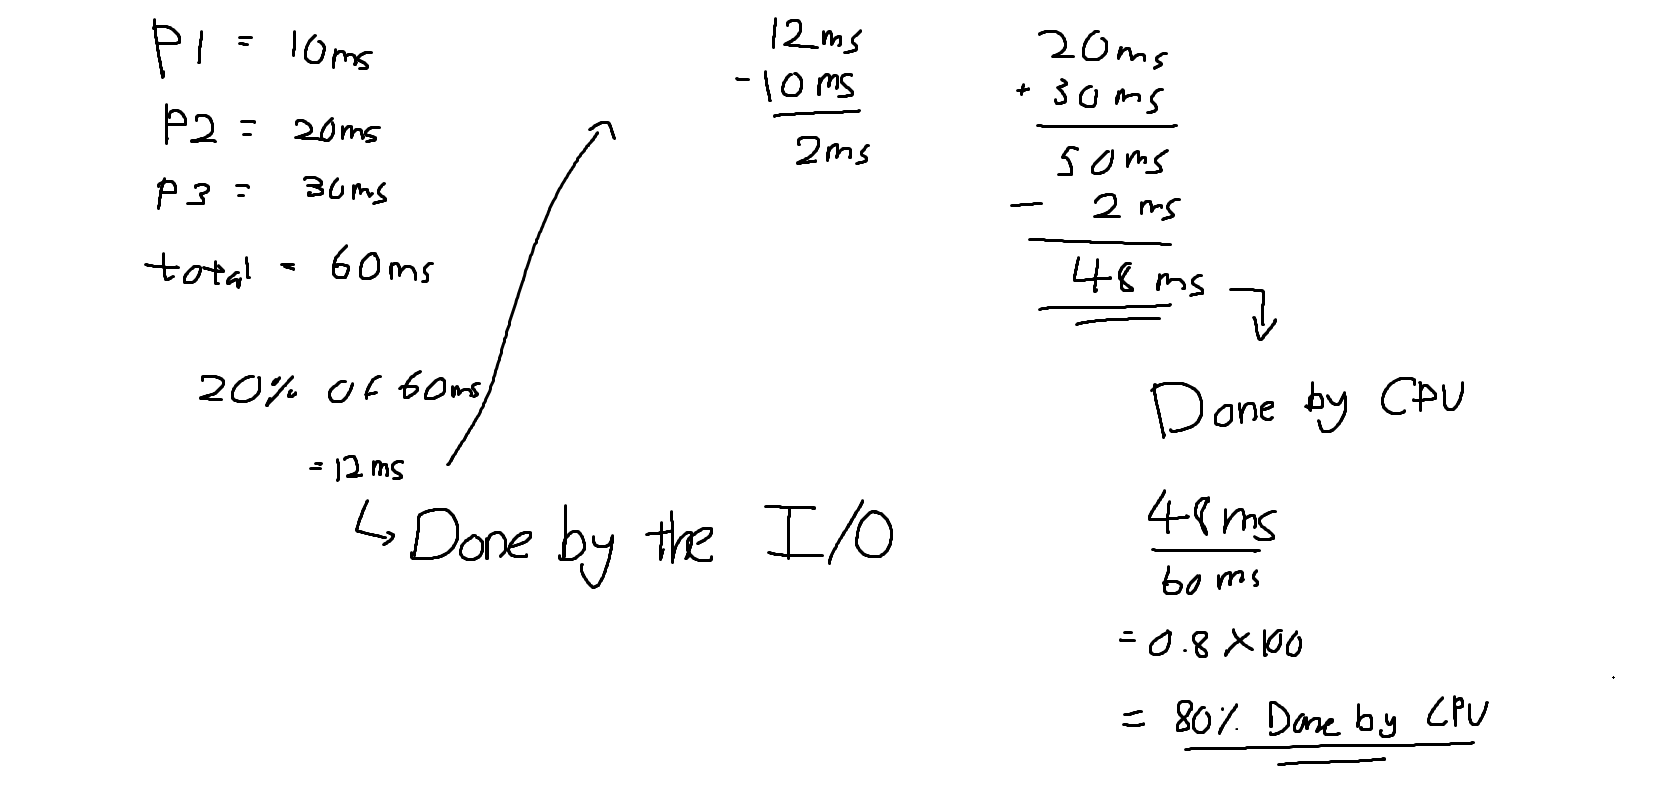 P1 = 10ms
P2 = 20ms
P3 = 30ms
total = 60ms
20% of 60ms
= 12ms
↳ Done by the I/O
12ms
- 10 ms
2ms
20ms
+ 30 ms
50ms
- 2 ms
48 ms
Done by CPU
48ms
60 ms
= 0.8 × 100
= 80% Done by CPU